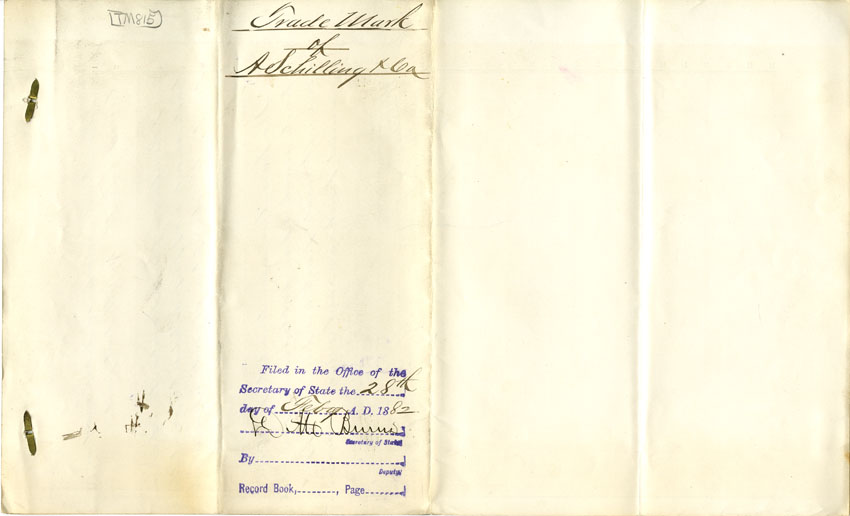 TM815
Trade Mark
of
A Schilling & Co
Filed in the Office of the
Secretary of State the 28th
day of Feby A. D. 1882
D. M. Burns
Secretary of State
By
Deputy
Record Book, , Page